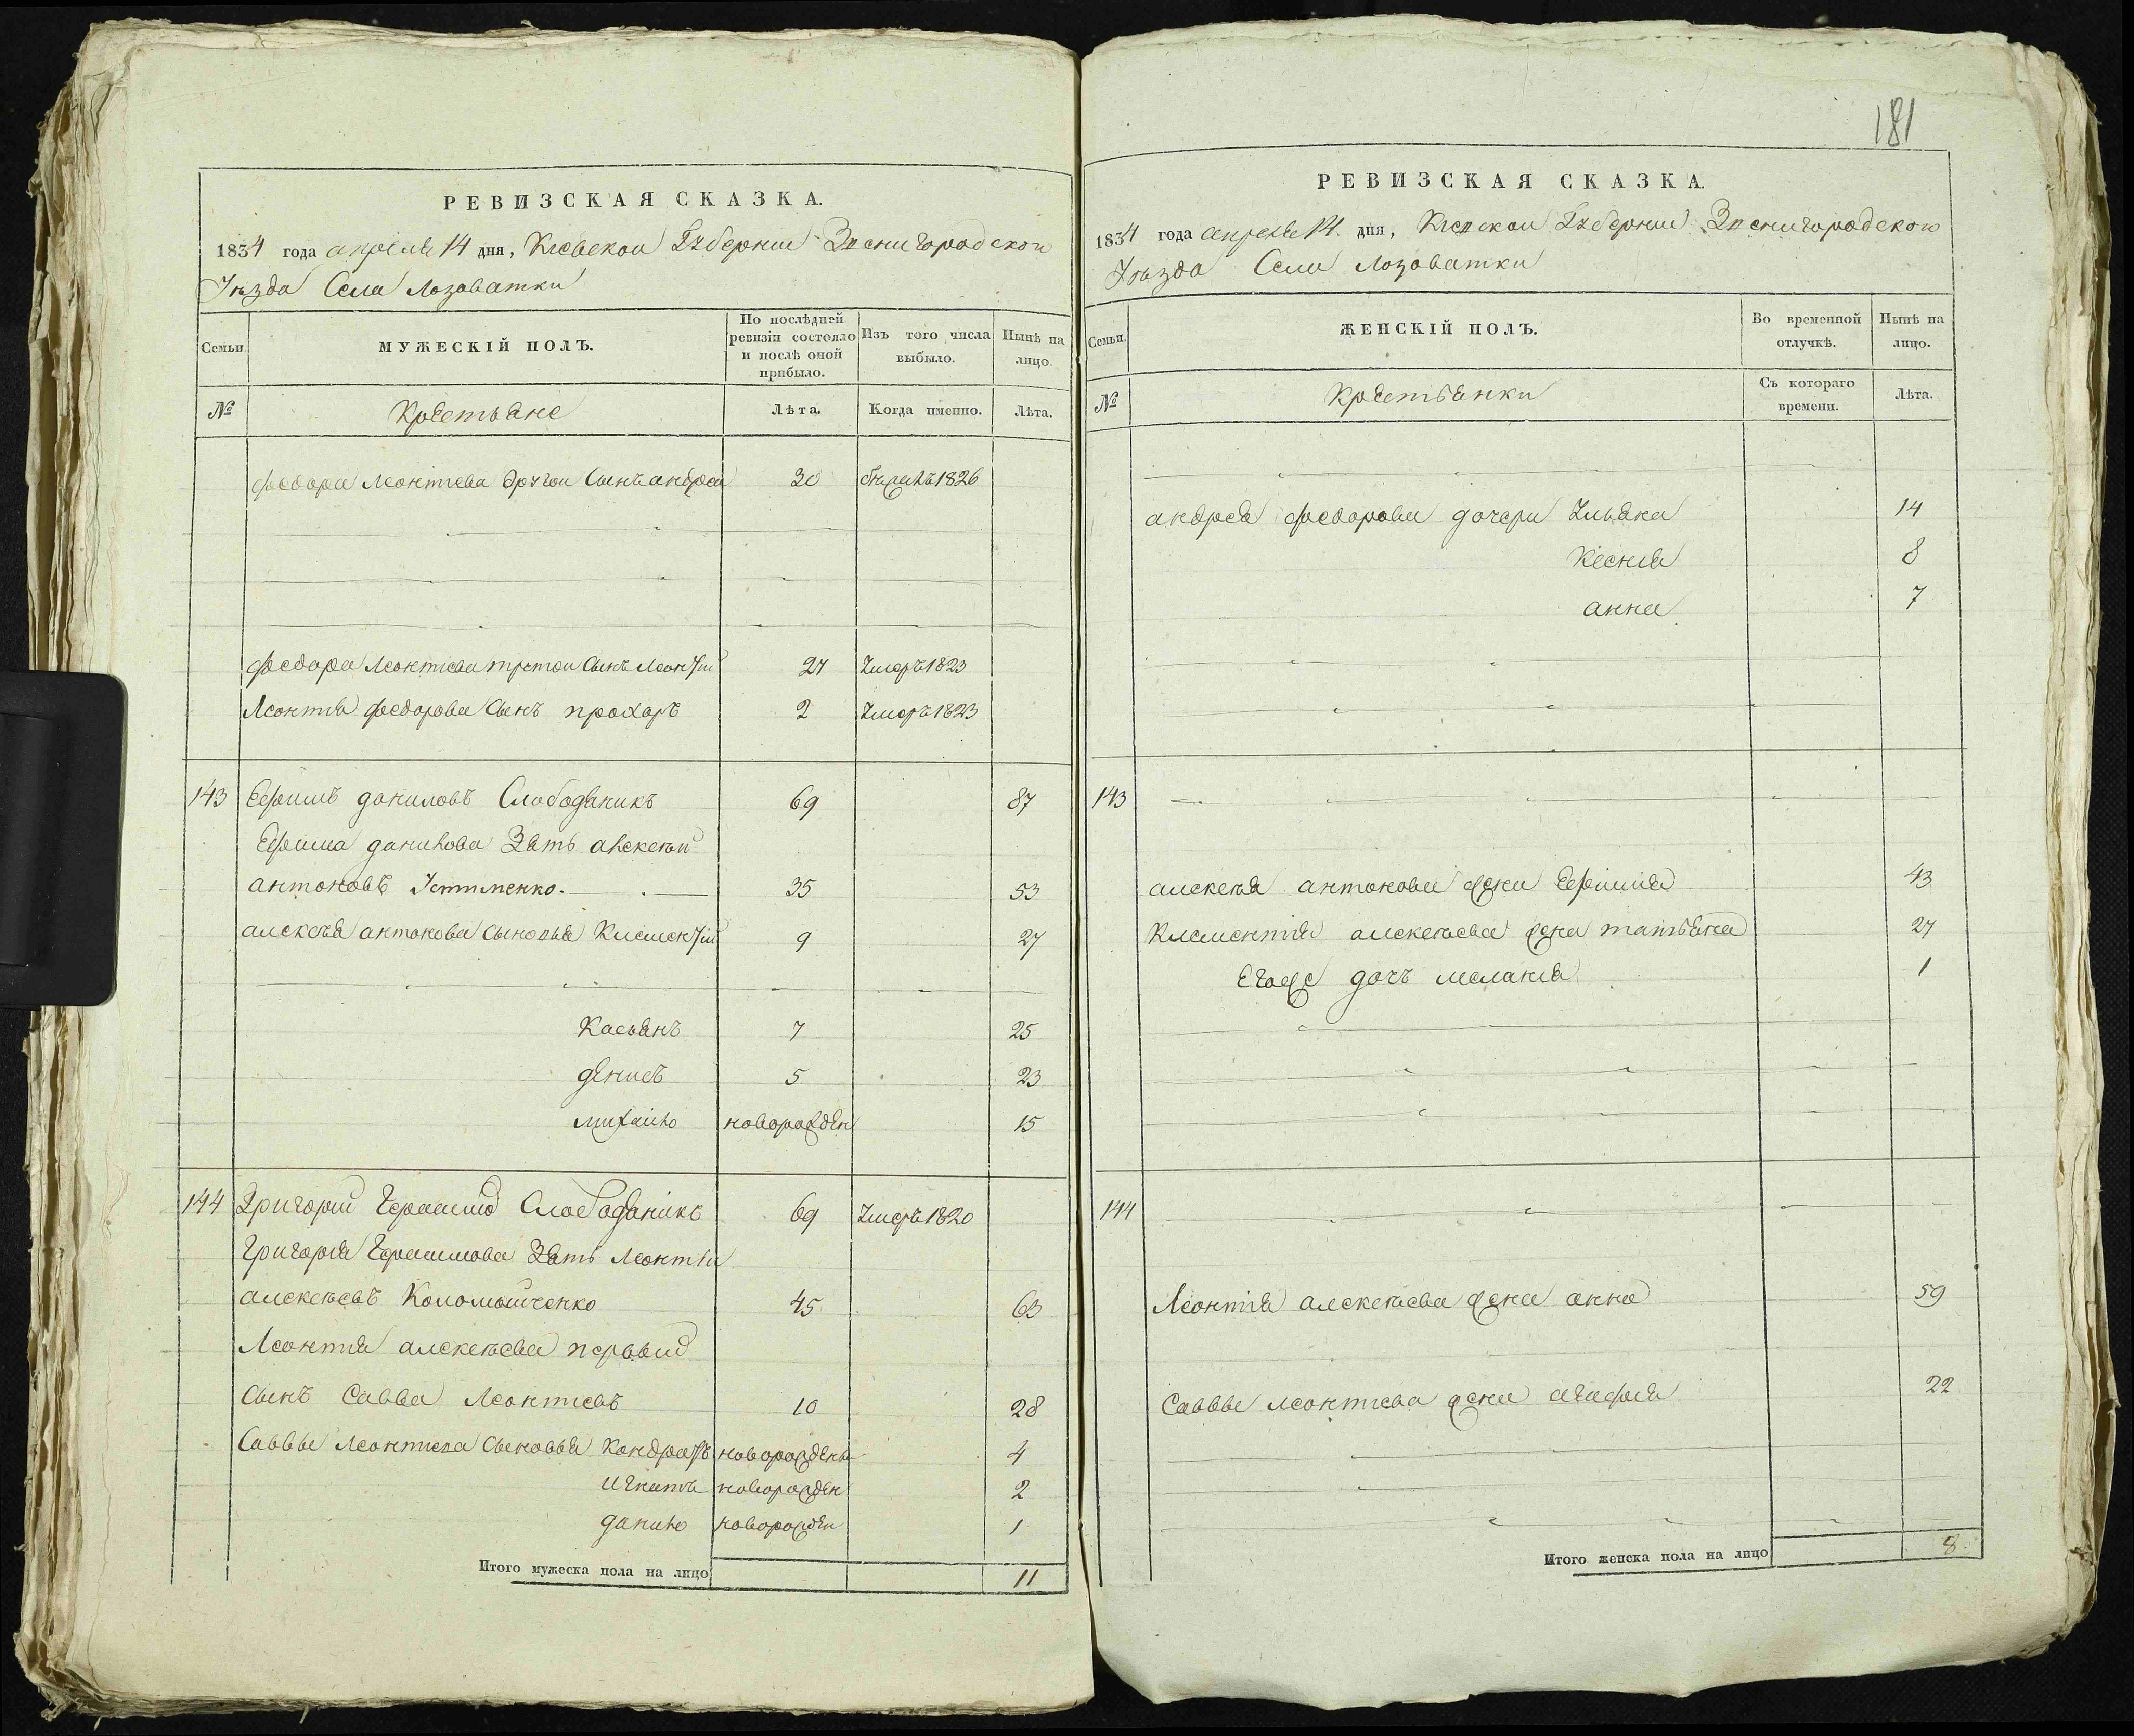 РЕВИЗСКАЯ СКАЗКА.
1834 года апреля 14 дня, Киевской Губернии Звенигородского
Уезда Села Лозоватки
Семьи.
МУЖЕСКІЙ ПОЛЪ.
По послѣдней ревизіи состояло и послѣ оной прибыло.
Изъ того числа выбыло.
Нынѣ на лицо.
№
Крестьяне
Лѣта.
Когда именно.
Лѣта.
федора леонтиева другои Сынъ андреи 30 1826
федора леонтиева третои Сынъ леонтии 27 Умеръ 1823
Леонтия федорова Сынъ прохоръ 2 Умеръ 1823
143 Ефимъ даниловъ Слободяникъ 69 87
Ефима данилова Зять алексѣи
антоновъ Устименко. 35 53
алексѣя антонова Сыновья Клементии 9 27
Касьянъ 7 25
денисъ 5 23
михаило новорожден 15
144 Григории Герасимо Слободяникъ 69 Умеръ 1820
Григория Герасимова Зять Леонтии
алексѣевъ Коломыйченко 45 63
Леонтия алексѣева первыи
Сынъ Савва Леонтиевъ 10 28
Саввы Леонтиева Сыновья Кондратъ новорожденъ 4
Игнатъ новорожден 2
данило новорожден 1
Итого мужеска пола на лицо 11
181
РЕВИЗСКАЯ СКАЗКА.
1834 года апреля 14. дня, Киевской Губернии Звенигородского
Уезда Села Лозоватки
Семьи.
ЖЕНСКІЙ ПОЛЪ.
Во временной отлучкѣ.
Нынѣ на лицо.
№
Крестьянки
Съ котораго времени.
Лѣта.
андрея федорова дочери Ульяна 14
Ксения 8
анна 7
143
алексѣя антонова жена Ефимия 43
Клементия алексѣева жена татьяна 27
Егоже дочъ мелания 1
144
Леонтия алексѣева жена анна 59
Саввы леонтиева жена агафия 22
Итого женска пола на лицо 8